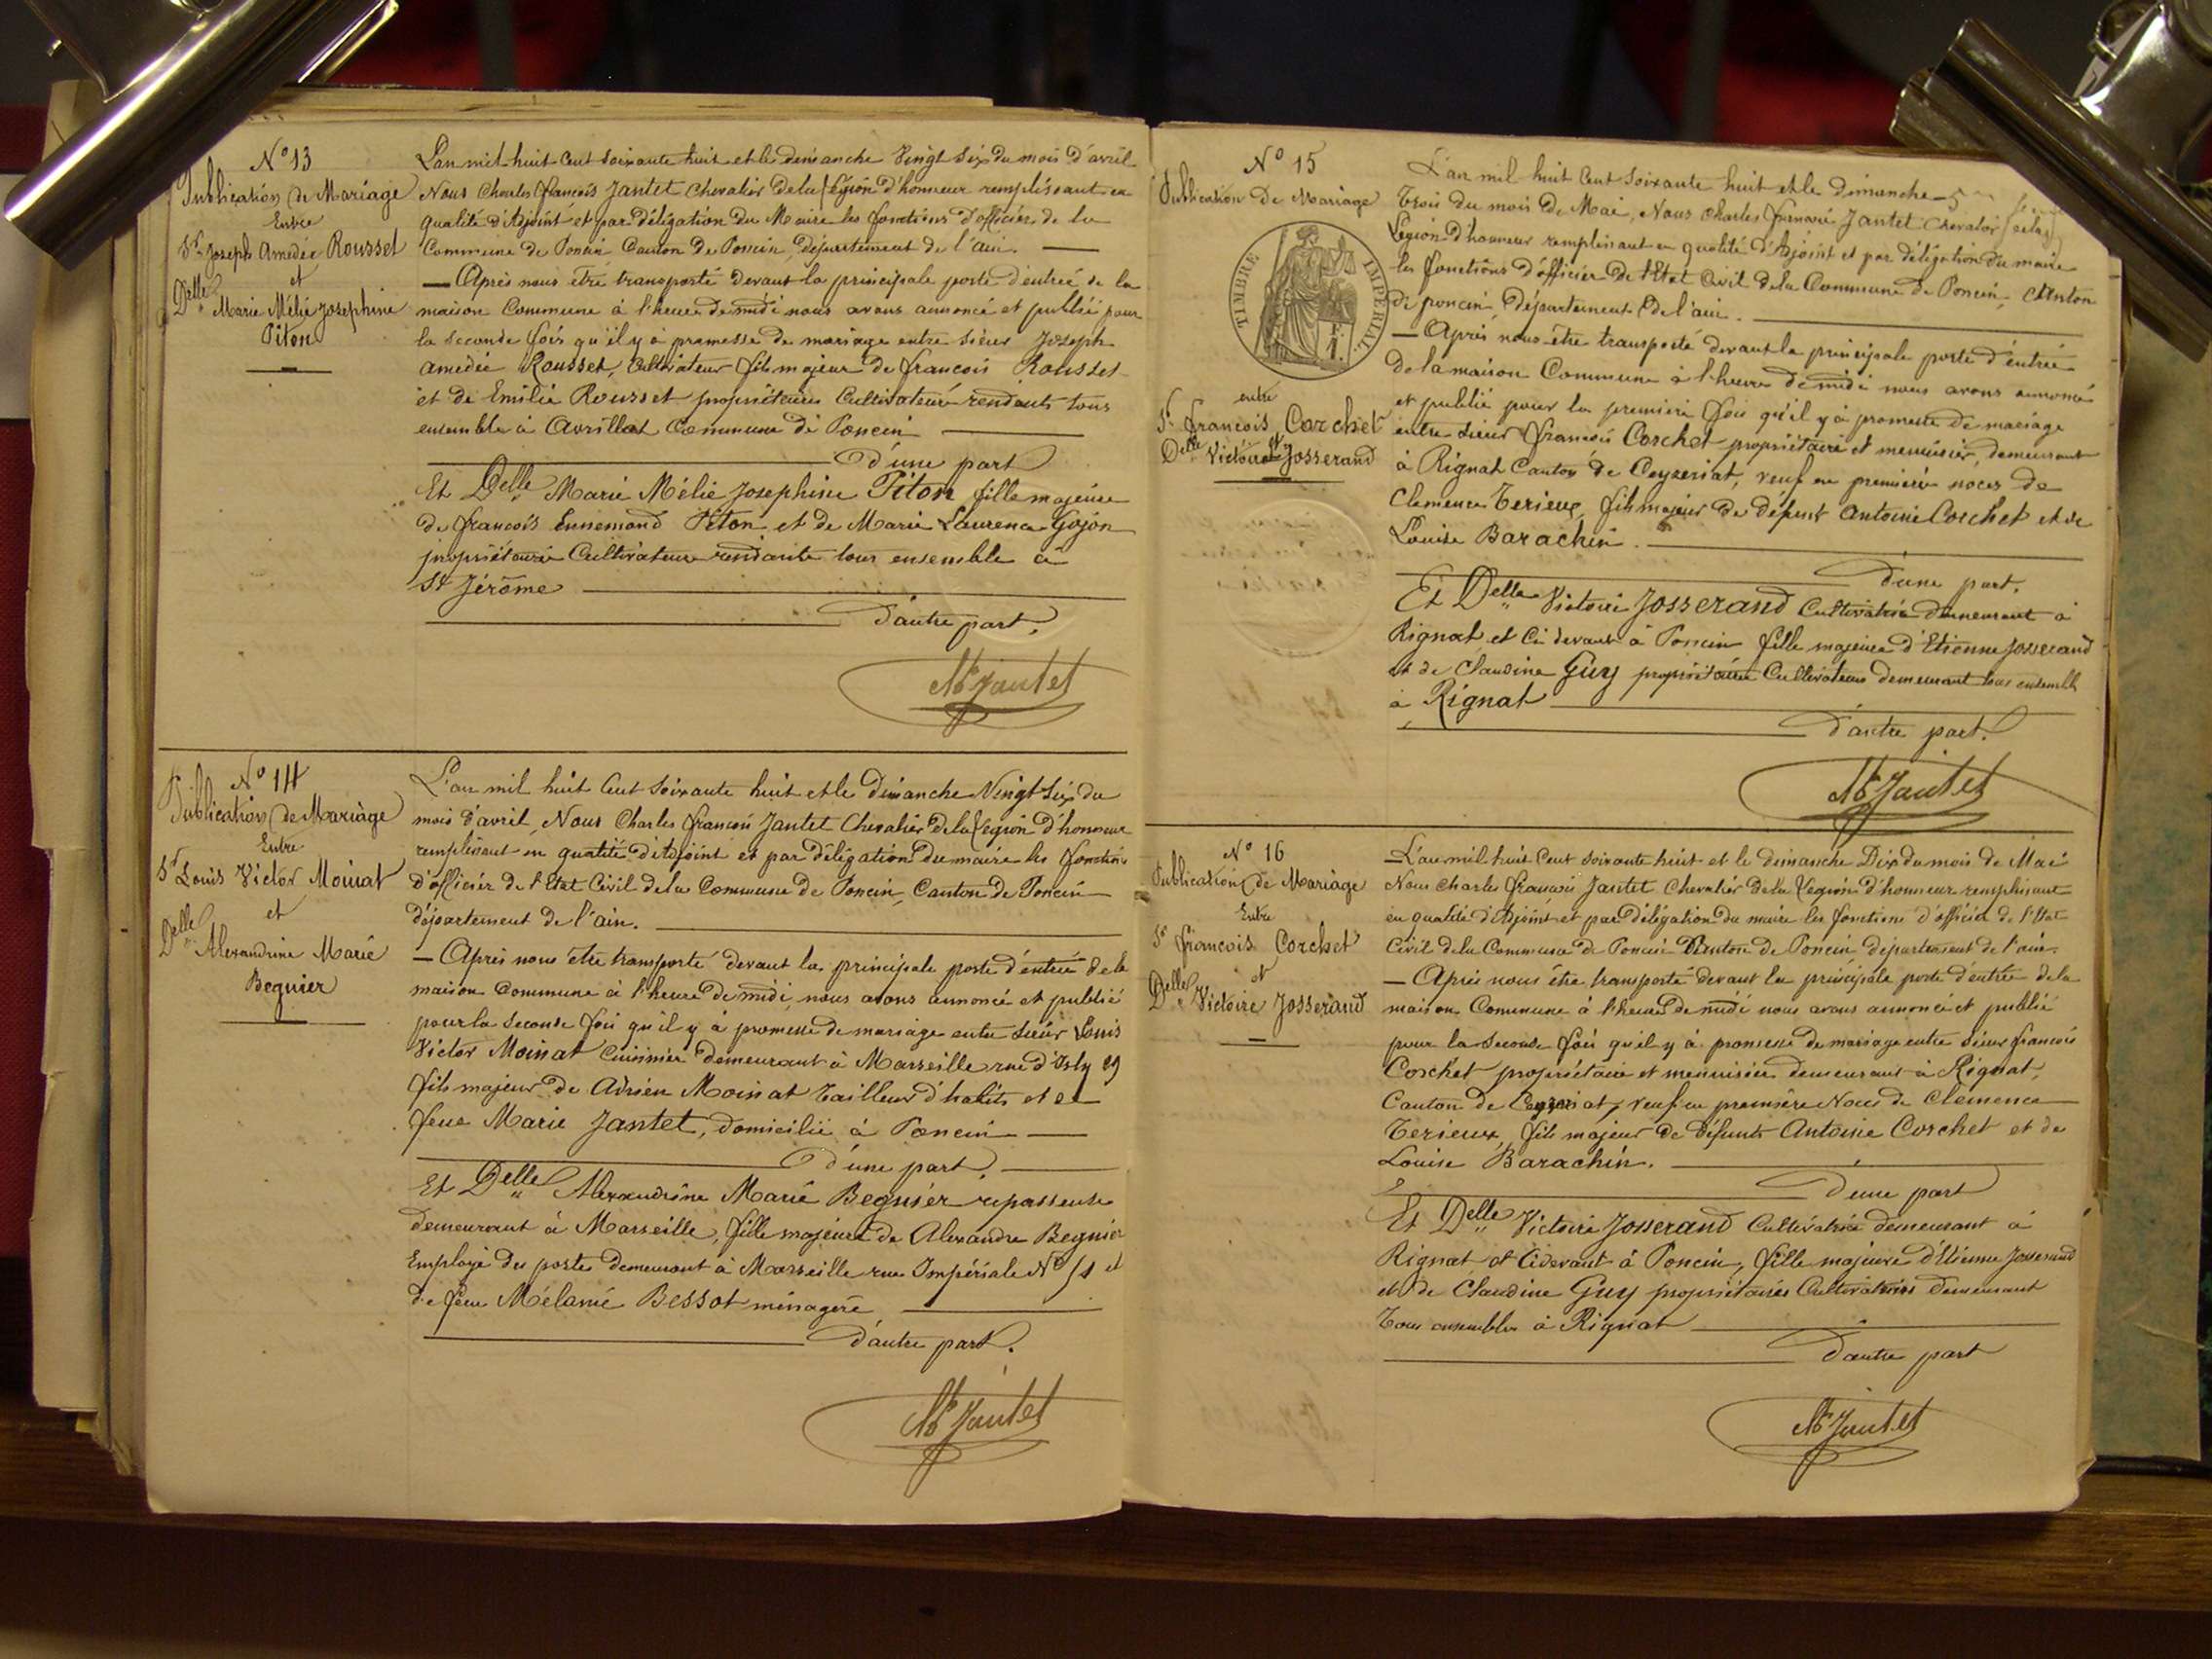 N° 13
Publication de Mariage
Entre
Sr Joseph Amedée Rousset
et
Delle Marie Mélie Josephine
Piton
L'an mil huit cent soixante huit et le dimanche Vingt Six du mois d'avril
Nous Charles françois Jantet Chevalier de la Légion d'honneur remplissant en
qualité d'Adjoint et par déligation du Maire les fonctions d'officier de la
Commune de Poncin, Canton de Poncin, département de l'ain.
— Après nous être transporté devant la principale porte d'entrée de la
maison Commune à l'heure de midi nous avons annoncé et publié pour
la seconde fois qu'il y à promesse de mariage entre sieur Joseph
amedée Rousset, Cultivateur fils majeur de francois Rousset
et de Emilie Rousset propriétaires Cultivateurs rendants tous
ensemble à Avrillat Commune de Poncin
d'une part
Et Delle Marie Mélie Josephine Piton fille majeure
de francois Ennemond Piton et de Marie Laurence Gojon
propriétaires Cultivateurs rendants tous ensemble à
St Jérôme
d'autre part.
Ch Jantet
N° 14
Publication de Mariage
Entre
Sr Louis Victor Moinat
et
Delle Alexandrine Marie
Beguier
L'an mil huit Cent Soixante huit et le Dimanche Vingt Six du
mois d'avril, Nous Charles francois Jantet Chevalier de la Légion d'honneur
remplissant en qualité d'Adjoint et par déligation du maire les fonctions
d'officier de l'Etat Civil de la Commune de Poncin, Canton de Poncin
département de l'ain.
— Après nous être transporté devant la principale porte d'entrée de la
maison Commune à l'heure de midi, nous avons annoncé et publié
pour la seconde fois qu'il y à promesse de mariage entre sieur Louis
Victor Moinat Cuisinier demeurant à Marseille rue d'Isly 29
fils majeur de Adrien Moinat Tailleur d'habits et de
feue Marie Jantet, domicilié à Poncin
d'une part.
Et Delle Alexandrine Marie Beguier repasseuse
demeurant à Marseille, fille majeure de Alexandre Beguier
Employé des postes demeurant à Marseille rue Impériale N° 51 et
de feue Mélanie Bessot ménagère
d'autre part.
Ch Jantet
N° 15
Publication de Mariage
TIMBRE IMPERIAL
entre
Sr francois Corchet
et
Delle Victoire Josserand
L'an mil huit Cent Soixante huit et le dimanche
Trois du mois de Mai, Nous Charles francois Jantet Chevalier de la
Légion d'honneur remplissant en qualité d'Adjoint et par déligation du maire
les fonctions d'officier de l'Etat Civil de la Commune de Poncin, Canton
de poncin, Département de l'ain.
— Après nous être transporté devant la principale porte d'entrée
de la maison Commune à l'heure de midi nous avons annoncé
et publié pour la première fois qu'il y à promesse de mariage
entre sieur francois Corchet propriétaire et menuisier, demeurant
à Rignat Canton de Ceyzeriat, veuf en première noces de
Clemence Terieux, fils majeur de défunt Antoine Corchet et de
Louise Barachin.
d'une part.
Et Delle Victoire Josserand Cultivatrice demeurant à
Rignat et Ci devant à Poncin fille majeure d'Etienne Josserand
et de Claudine Guy propriétaires Cultivateurs demeurant tous ensemble
à Rignat
d'autre part.
Ch Jantet
N° 16
Publication de Mariage
Entre
Sr francois Corchet
et
Delle Victoire Josserand
L'an mil huit Cent soixante huit et le dimanche Dix du mois de Mai
Nous Charles francois Jantet Chevalier de la Légion d'honneur remplissant
en qualité d'Adjoint et par déligation du maire les fonctions d'officier de l'Etat
Civil de la Commune de Poncin Canton de Poncin, département de l'ain.
— Après nous être transporté devant la principale porte d'entrée de la
maison Commune à l'heure de midi nous avons annoncé et publié
pour la seconde fois qu'il y à promesse de mariage entre sieur francois
Corchet propriétaire et menuisier demeurant à Rignat,
Canton de Ceyzeriat, veuf en première Noces de Clemence
Terieux, fils majeur de défunts Antoine Corchet et de
Louise Barachin.
d'une part
Et Delle Victoire Josserand Cultivatrice demeurant à
Rignat et Cidevant à Poncin, fille majeure d'Etienne Josserand
et de Claudine Guy propriétaires Cultivateurs demeurant
Tous ensemble à Rignat
d'autre part
Ch Jantet